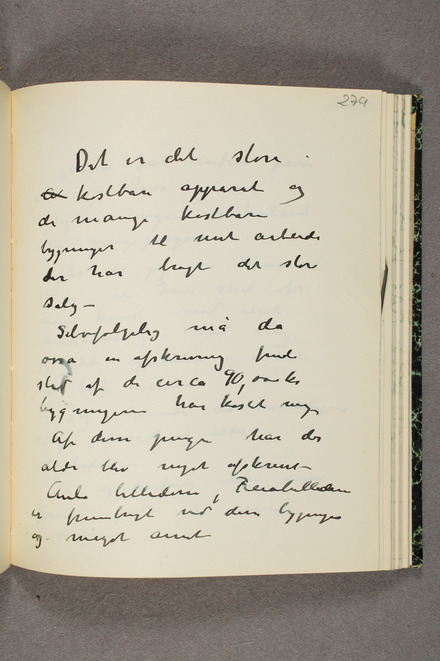 279
Det er det store
kostbare apparat og
de mange kostbare
bygninger til mit arbeide
der har bragt det store
salg –
Selvfølgelig må da
også en afskrivning finde
sted af de circa 90,000 kr
bygningerne har kostet mig
Af disse penge har der
aldri blev noget afskrevet –
Aula billederne, Freiabillederne
er frembragt ved disse bygninger
og meget andet